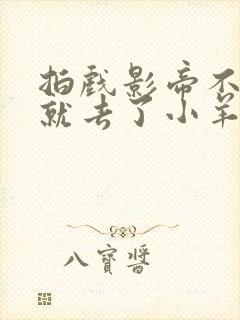 拍戏影帝不
就去了小羊
八寳醬